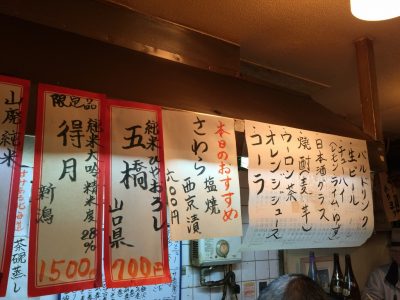 ソフトドリンク
・生ビール
・チューハイ
(レモン・ライム・ゆず)
・日本酒グラス
・焼酎(麦・芋)
・ウーロン茶
・オレンジジュース
・コーラ
本日のおすすめ
さわら
塩焼
西京漬
純米ひやおろし
五橋
山口県
700円
限定品
純米大吟醸
精米度28%
得月
新潟
1500円
山廃純米
茶碗蒸し